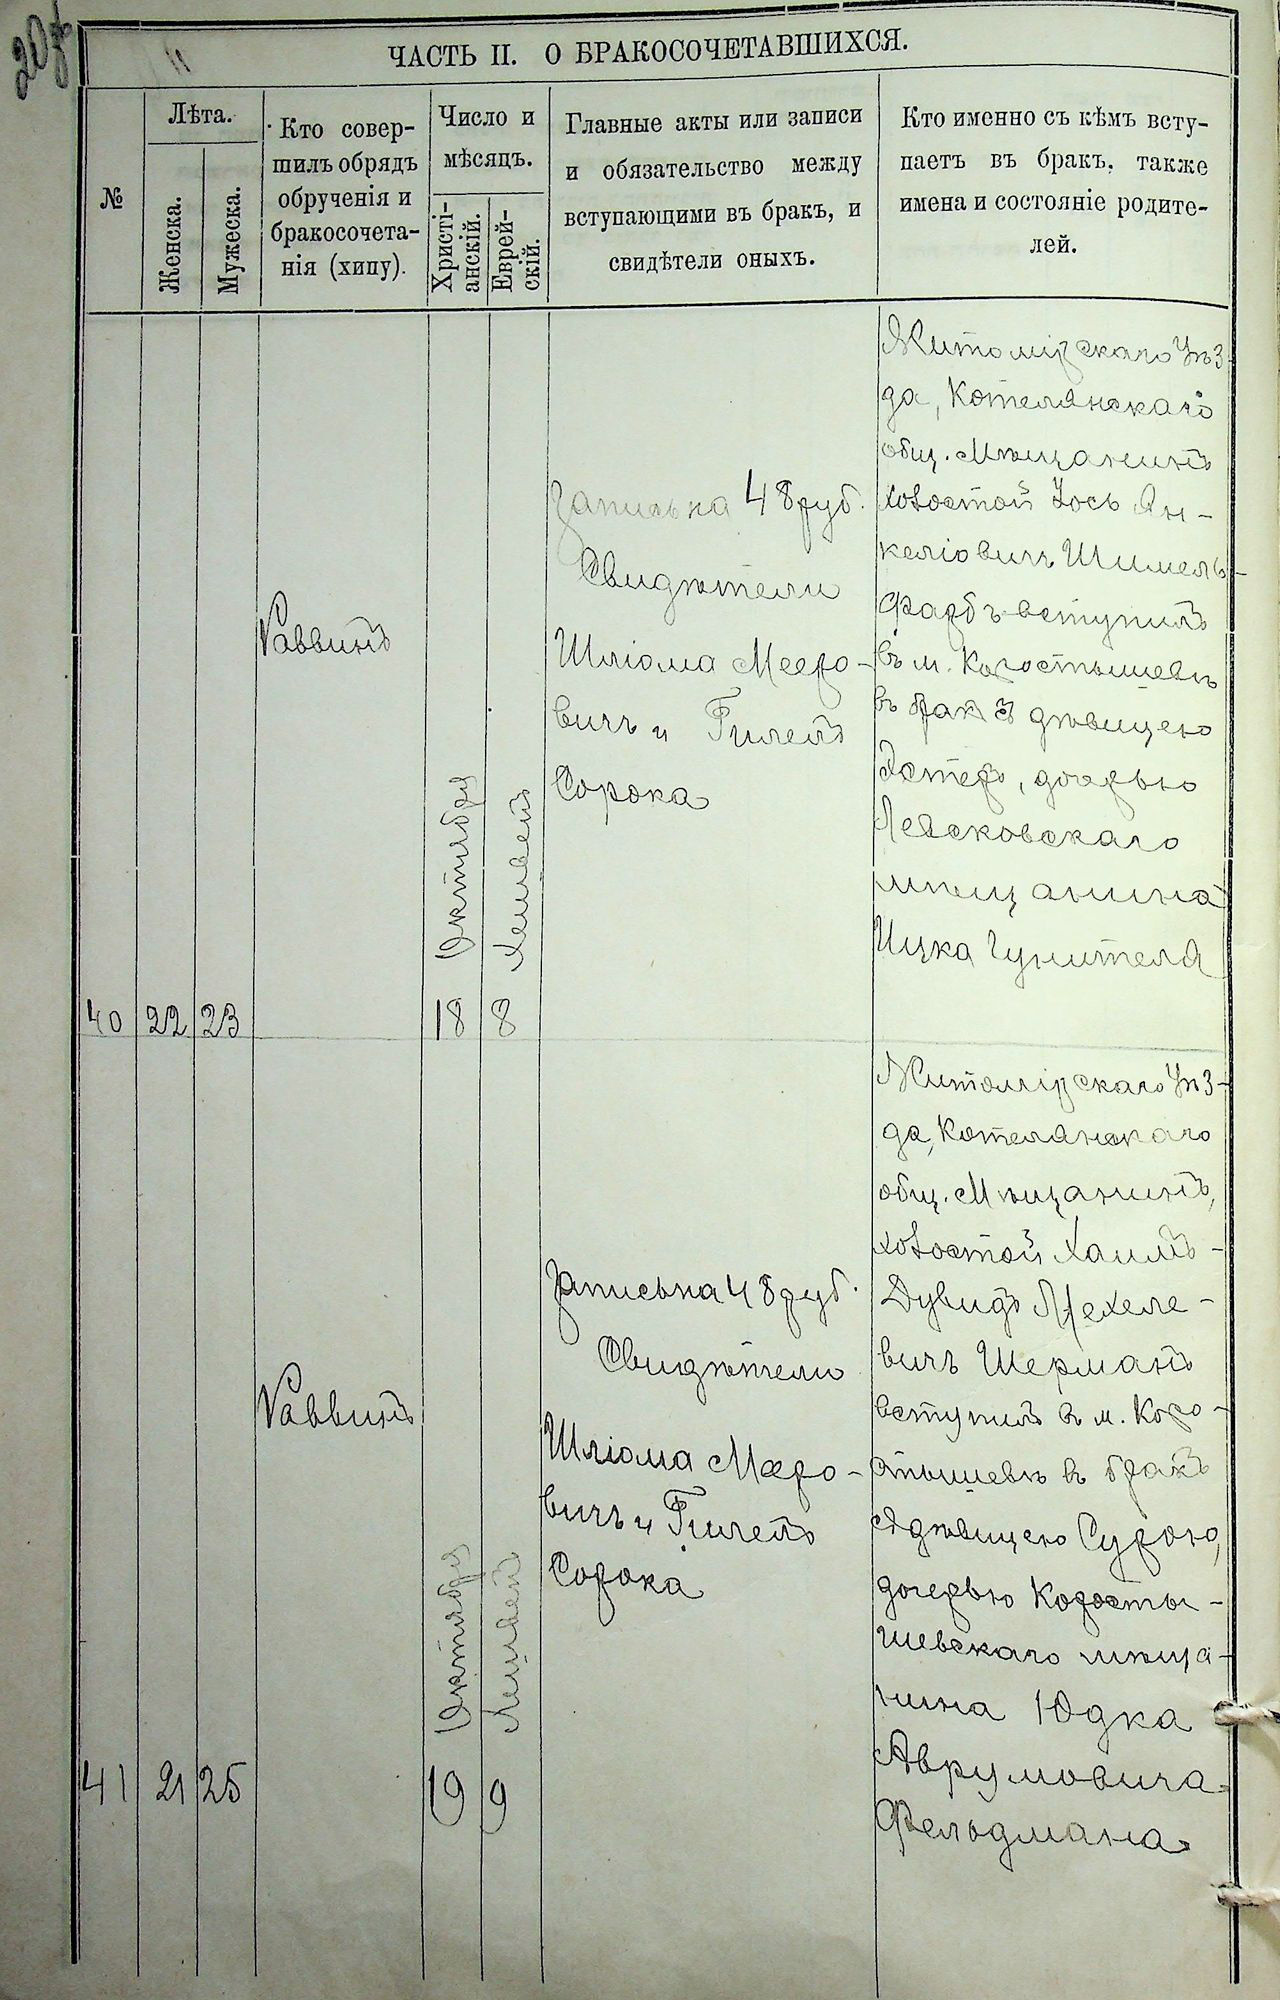 ЧАСТЬ II. О БРАКОСОЧЕТАВШИХСЯ.
№
Лѣта.
Женска.
Мужеска.
Кто совер-
шилъ обрядъ
обрученія и
бракосочета-
нія (хипу).
Число и
мѣсяцъ.
Христі-
анскій.
Еврей-
скій.
Главные акты или записи
и обязательство между
вступающими въ бракъ, и
свидѣтели оныхъ.
Кто именно съ кѣмъ всту-
паетъ въ бракъ, также
имена и состояніе родите-
лей.
40
22
23
Раввинъ
Октября
18
Хешвенъ
8
Запись на 48 руб.
Свидѣтели
Шліома Мееро-
вичъ и Гилелъ
Сорока
Житомірскаго Уѣз-
да, Котелянскаго
общ. Мѣщанинъ
холостой Іось Ян-
келіовичъ Шимель-
фарбъ вступилъ
въ м. Коростышевѣ
въ бракъ съ дѣвицею
Эстеръ, дочерью
мѣщанина
Ицка Гунителя
41
21
25
Раввинъ
Октября
19
Хешвенъ
9
Запись на 48 руб.
Свидѣтели
Шліома Мееро-
вичъ и Гилелъ
Сорока
Житомірскаго Уѣз-
да, Котелянскаго
общ. Мѣщанинъ,
холостой Хаимъ-
Дувидъ Мехеле-
вичъ Шерманъ
вступилъ въ м. Коро-
стышевѣ въ бракъ
съ дѣвицею Сурою,
дочерью Коросты-
шевскаго мѣща-
нина Юдка
Аврумовича
Фельдмана